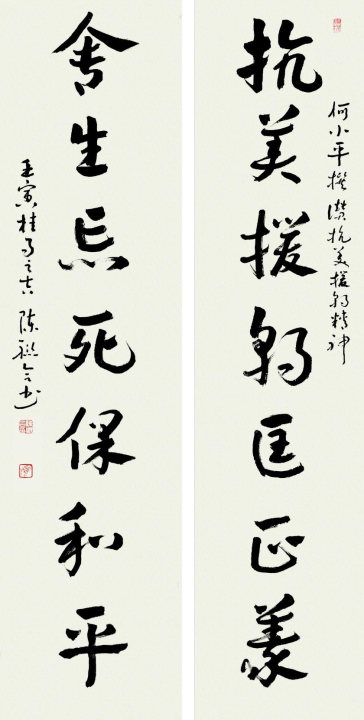 何小平撰讚抗美援朝精神
抗美援朝匡正義
舍生忘死保和平
壬寅桂月之吉陈联合书